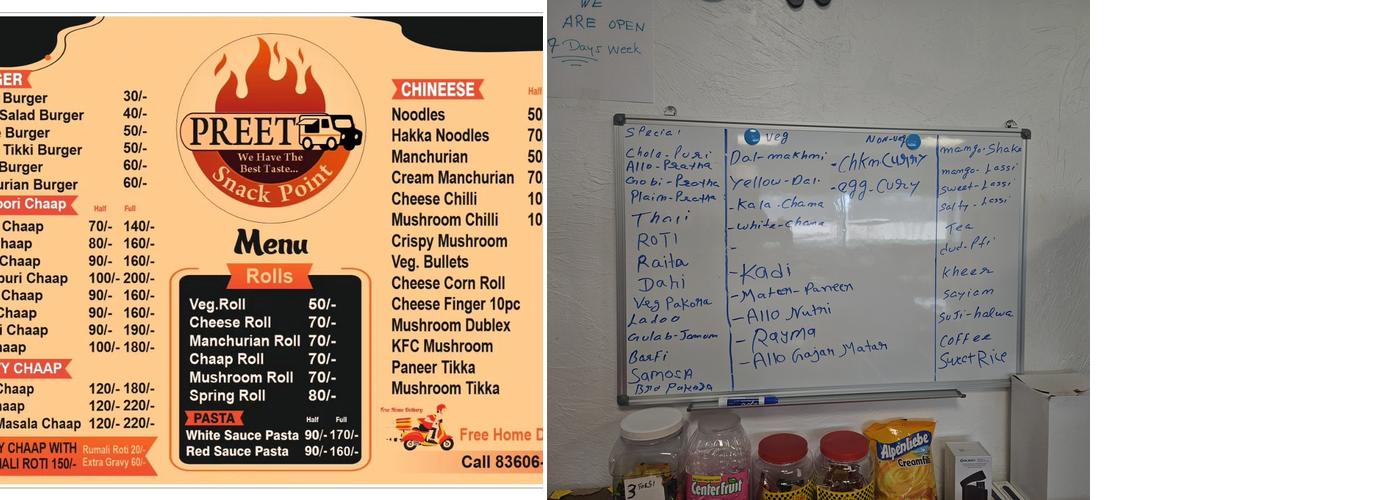 GER
Burger 30/-
Salad Burger 40/-
Burger 50/-
Tikki Burger 50/-
Burger 60/-
urian Burger 60/-
oori Chaap Half Full
Chaap 70/- 140/-
haap 80/- 160/-
Chaap 90/- 160/-
puri Chaap 100/- 200/-
Chaap 90/- 160/-
Chaap 90/- 160/-
i Chaap 90/- 190/-
haap 100/- 180/-
Y CHAAP
Chaap 120/- 180/-
haap 120/- 220/-
Masala Chaap 120/- 220/-
Y CHAAP WITH
MALI ROTI 150/-
Rumali Roti 20/-
Extra Gravy 60/-
PREET
We Have The
Best Taste...
Snack Point
Menu
Rolls
Veg.Roll 50/-
Cheese Roll 70/-
Manchurian Roll 70/-
Chaap Roll 70/-
Mushroom Roll 70/-
Spring Roll 80/-
PASTA Half Full
White Sauce Pasta 90/- 170/-
Red Sauce Pasta 90/- 160/-
CHINEESE Half
Noodles 50
Hakka Noodles 70
Manchurian 50
Cream Manchurian 70
Cheese Chilli 10
Mushroom Chilli 10
Crispy Mushroom
Veg. Bullets
Cheese Corn Roll
Cheese Finger 10pc
Mushroom Dublex
KFC Mushroom
Paneer Tikka
Mushroom Tikka
Free Home Delivery
Free Home D
Call 83606-
WE
ARE OPEN
7 Days Week
Special
Chole-Puri
Allo-Pratha
Gobi-Pratha
Plain-Pratha
Thali
ROTI
Raita
Dahi
Veg Pakora
Ladoo
Gulab-Jamum
Barfi
Samosa
Brd Pakoda
veg
Dal-makhni
Yellow-Dal
-Kala-Chana
-white-chana
-
-Kadi
-Mater-Paneer
-Allo Nutri
-Rayma
-Allo Gajar Matar
Non-veg
-Chkn Curry
-egg-curry
mango-Shake
mango-Lassi
sweet-Lassi
Salty-Lassi
Tea
kheer
Sayiam
Suji-halwa
Coffee
Sweet Rice
3 for $1
Center fruit
Alpenliebe
Creamfills